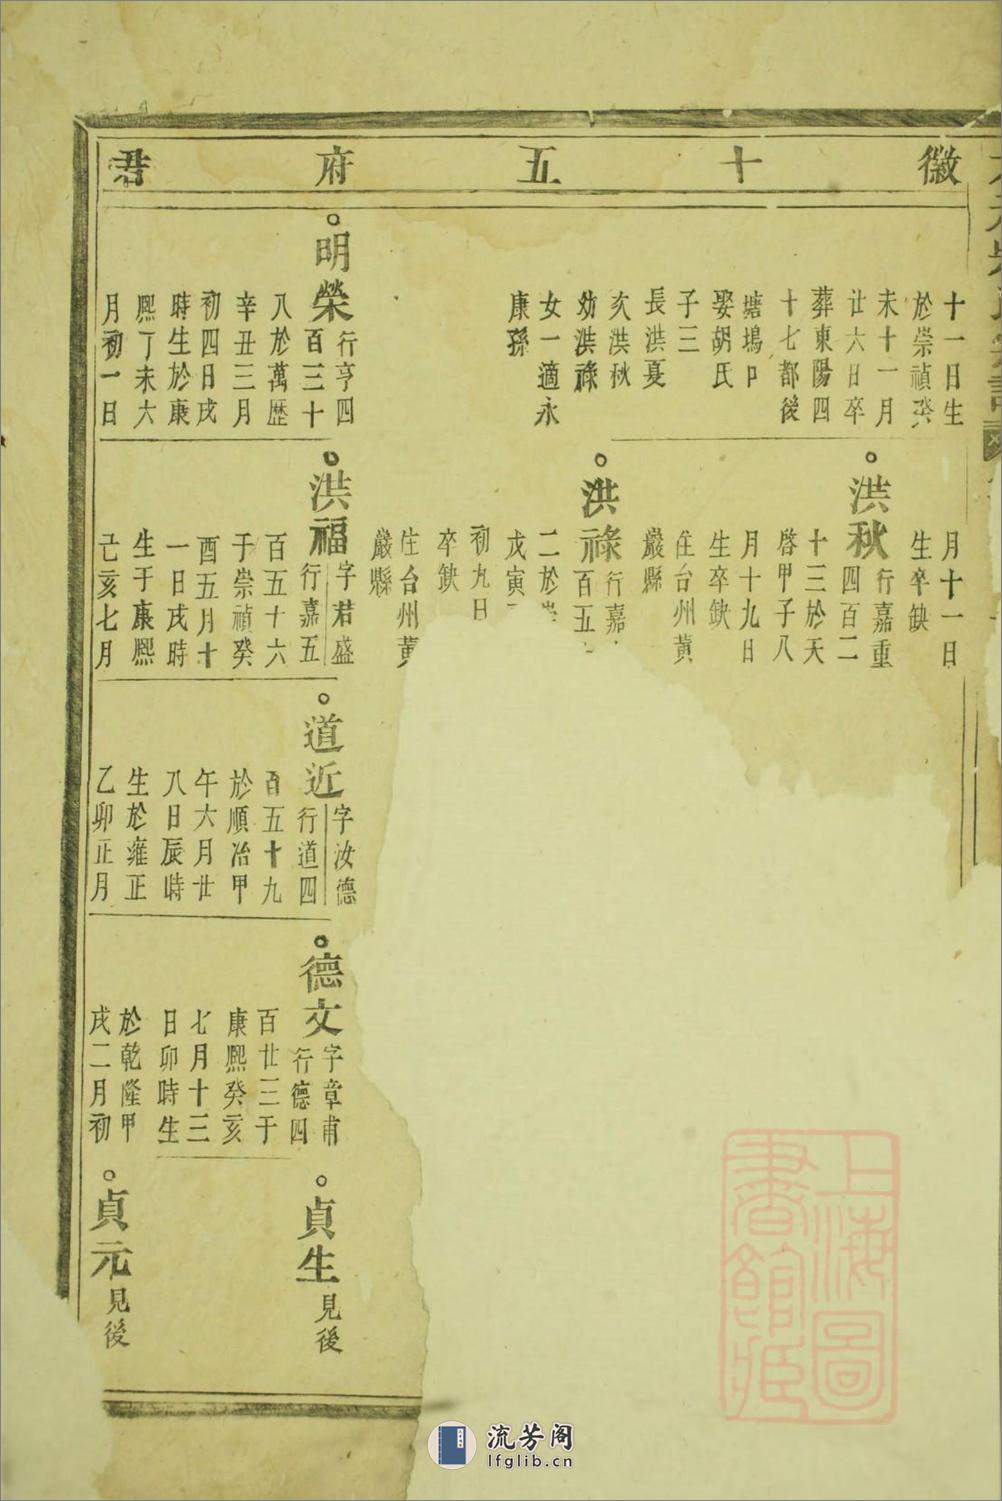 徽十五府君
十一日生
於崇禎癸
未十一月
廿六日卒
葬東陽四
十七都後
塘塢口
娶胡氏
子三
長洪夏
次洪秋
幼洪祿
女一適永
康孫
明榮
行亨四
百三十
八於萬歷
辛丑三月
初四日戌
時生於康
熙丁未六
月初一日
月十一日
生卒缺
洪秋
行嘉重
四百二
十三於天
啓甲子八
月十九日
生卒缺
住台州黃
巖縣
洪祿
行嘉
百五
二於
戊寅
初九日
卒缺
住台州黃
巖縣
洪福
字君盛
行嘉五
百五十六
于崇禎癸
酉五月十
一日戌時
生于康熙
己亥七月
道近
字汝德
行道四
百五十九
於順治甲
午六月廿
八日辰時
生於雍正
乙卯正月
德文
字章甫
行德四
百廿三于
康熙癸亥
七月十三
日卯時生
於乾隆甲
戌二月初
貞生
見後
貞元
見後
上海圖書館藏
流芳阁
lfglib.cn